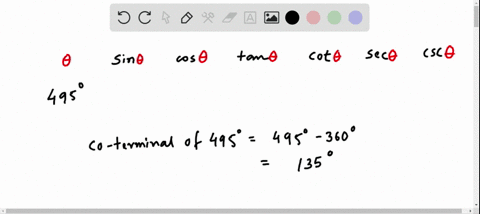 θ sinθ cosθ tanθ cotθ secθ cscθ
495°
co-terminal of 495° = 495° - 360°
= 135°